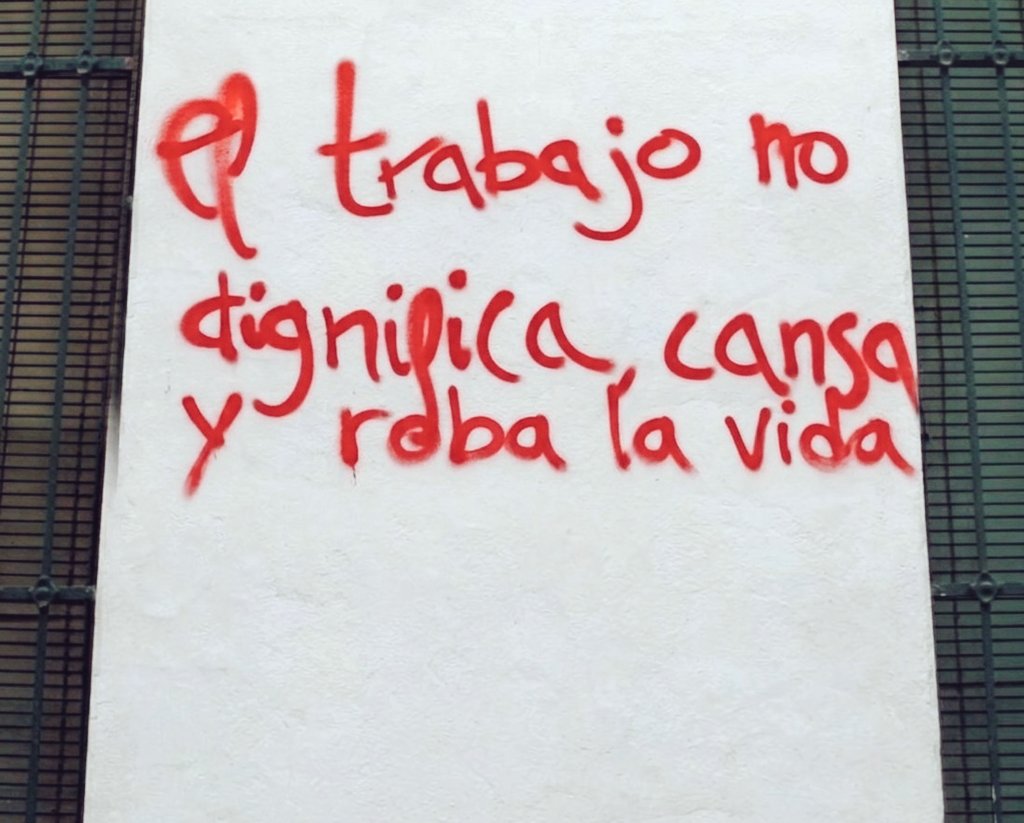 el trabajo no
dignifica, cansa
y roba la vida